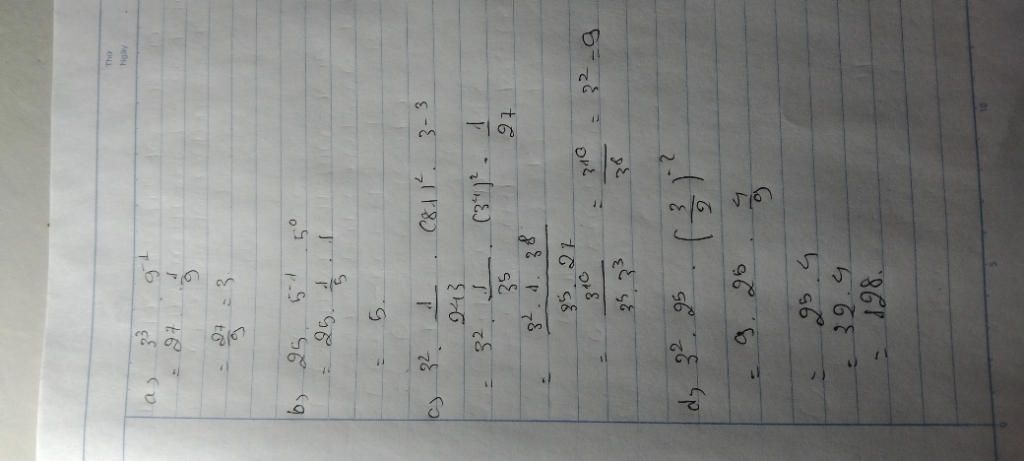 Thứ
Ngày
a) 3³ . 9⁻¹
= 27 . 1/9
= 27/9 = 3
b) 25 . 5⁻¹ . 5⁰
= 25 . 1/5 . 1
= 5.
c) 3² . 1/243 . (81)² . 3⁻³
= 3² . 1/3⁵ . (3⁴)² . 1/27
= 3² . 1 . 3⁸ / 3⁵ . 27
= 3¹⁰ / 3⁵ . 3³ = 3¹⁰/3⁸ = 3² = 9
d) 3² . 2⁵ . (3/2)⁻²
= 9 . 2⁵ . 4/9
= 2⁵ . 4
= 32 . 4
= 128.
0 5 10